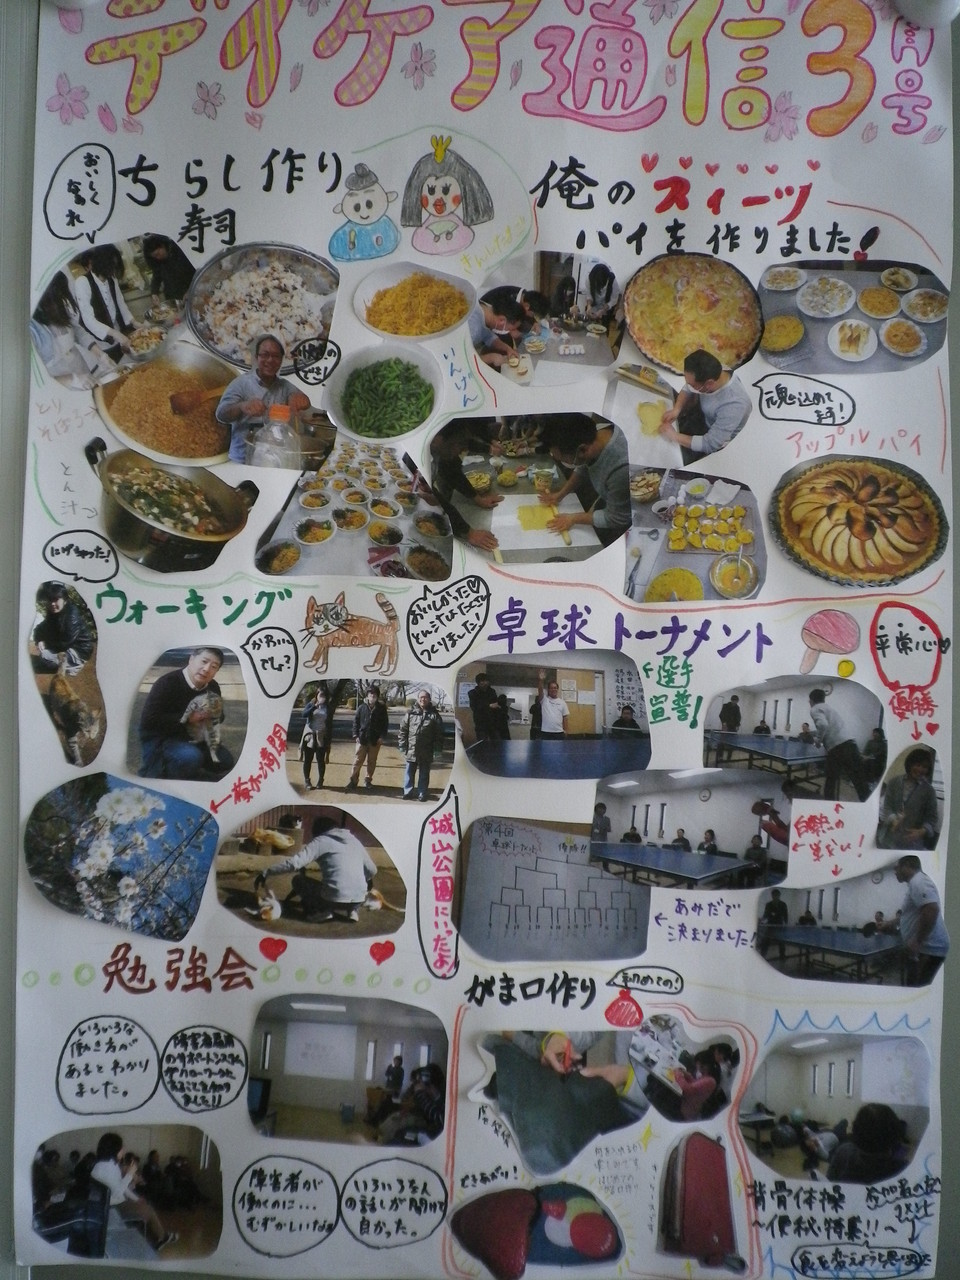 デイケア通信3月号
おいしくなあれ
ちらし作り
寿司
俺のスィーツ
パイを作りました!
きんしたまご
いんげん
とりそぼろ→
とん汁→
魂込めてます!
アップルパイ
にげちゃった!
ウォーキング
かわいいでしょ?
おいしかった♡
とん汁もたくさん
つくりました!
卓球トーナメント
←選手
宣誓!
平常心♡
優勝
第4回
城山公園にいったよ
白熱の
戦い!
←あみだで
決まりました!
勉強会
いろいろな
働き方が
あるとわかり
ました。
障害者が
働くのに…
むずかしいな
いろいろな人
の話しが聞けて
良かった。
がま口作り
初めての!
できあがり!
背骨体操
~便秘特集!!~